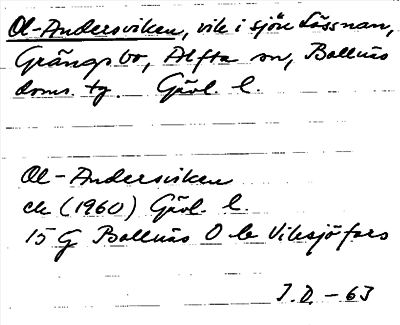 Ol-Andersviken, vik i sjön Lössnan,
Grängsbo, Alfta sn, Bollnäs
doms. tg. Gävl. l.
Ol-Andersviken
ek (1960) Gävl. l.
15 G Bollnäs O le Viksjöfors
J.D. - 63